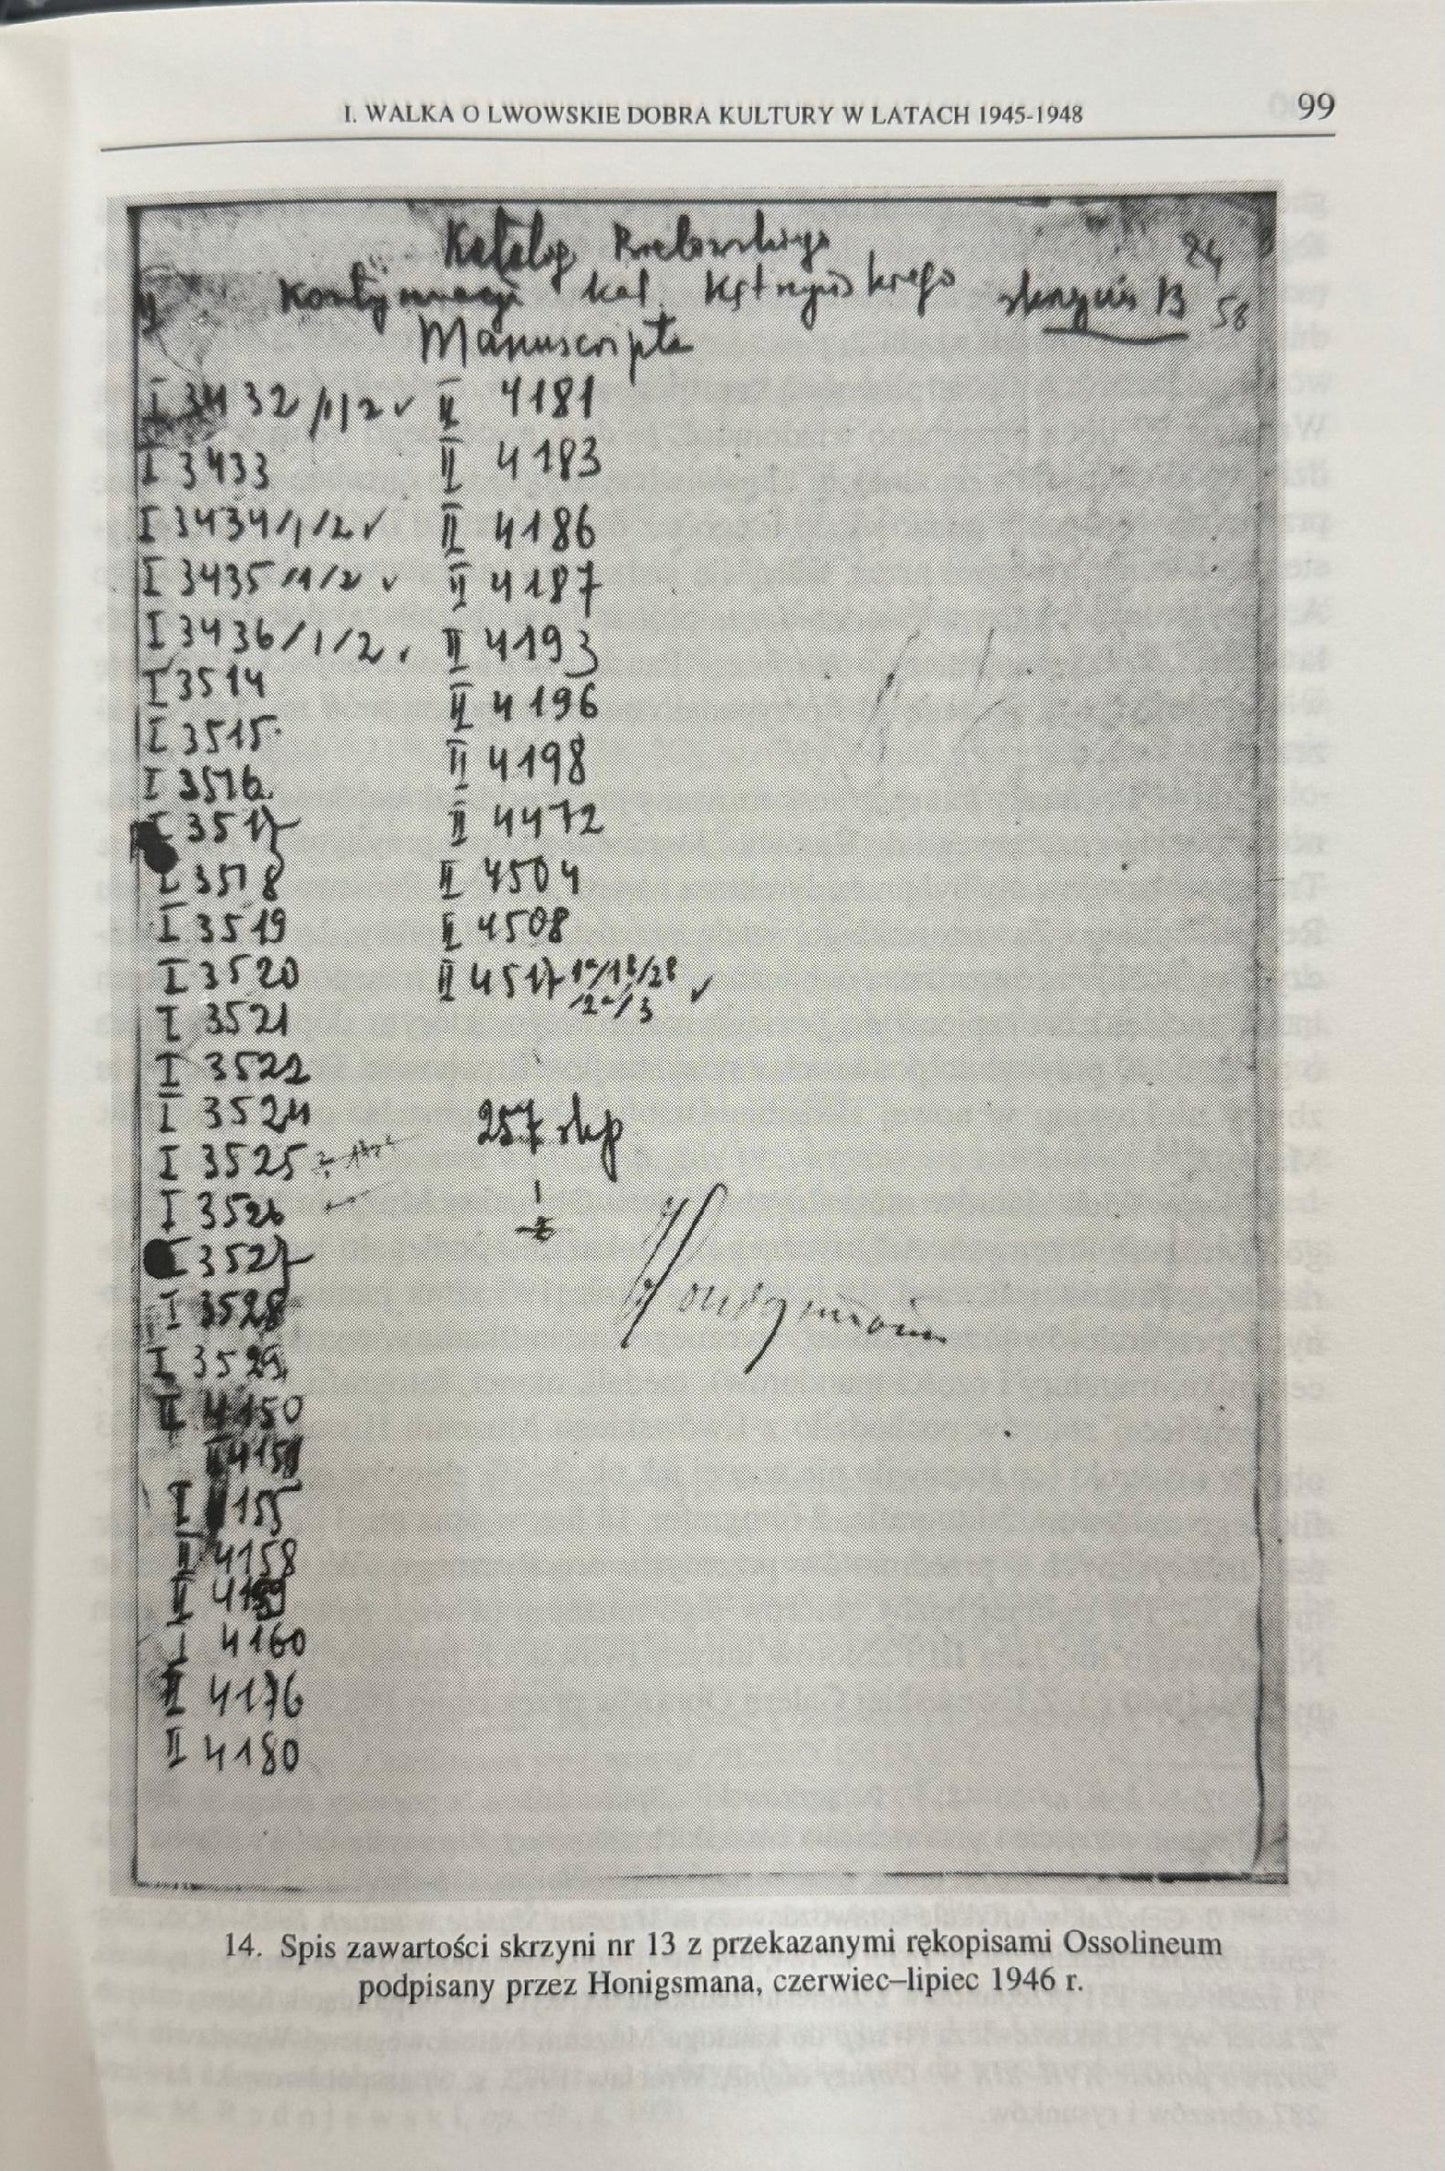 I. WALKA O LWOWSKIE DOBRA KULTURY W LATACH 1945-1948
99
Katalog Bielowskiego
24
Kontynuacji kat. Kętrzyńskiego skrzynia 13
58
Manuscripta
I 3432/1/2 ✓
I 3433
I 3434/1/2 ✓
I 3435/1/2 ✓
I 3436/1/2
I 3514
I 3515
I 3516
I 3517
I 3518
I 3519
I 3520
I 3521
I 3522
I 3524
I 3525
I 3526
I 3527
I 3528
I 3529
II 4150
II 4151
I 4155
II 4158
4159
4160
II 4176
II 4180
II 4181
II 4183
II 4186
II 4187
II 4193
II 4196
II 4198
II 4472
II 4504
II 4508
II 4517 1a/1b/2b
/2a/3 ✓
257 rkp
Honigsman
14. Spis zawartości skrzyni nr 13 z przekazanymi rękopisami Ossolineum
podpisany przez Honigsmana, czerwiec–lipiec 1946 r.